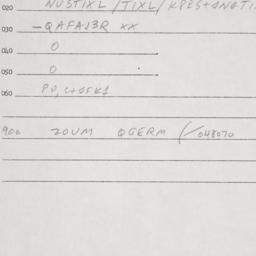 020 NUSTIXL/TIXL/KPES+ANGTI
030 -QAFAJ3R XX
040 0
050 0
060
900 ZOUM QGERM /048070